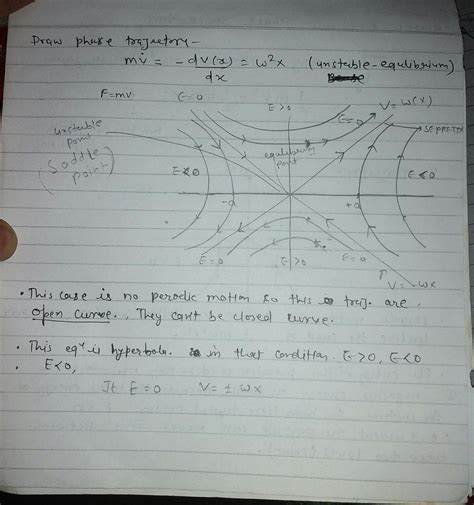 Draw phase trajectory -
mv̇ = -dV(x)/dx = ω²x (unstable-equlibrium)
F=mv. E=0 E>0 V=ω(x)
E=0
unstable point
(Saddle point)
equlibrium point
E<0 E<0
-a +a
E=0 E>0 E=0
V=-ωx
• This case is no perodic motion so this traj. are
open curve. They can't be closed curve.
• This eqⁿ is hyperbola. in that condition E>0, E<0
• E<0,
If E=0 V=± ωx